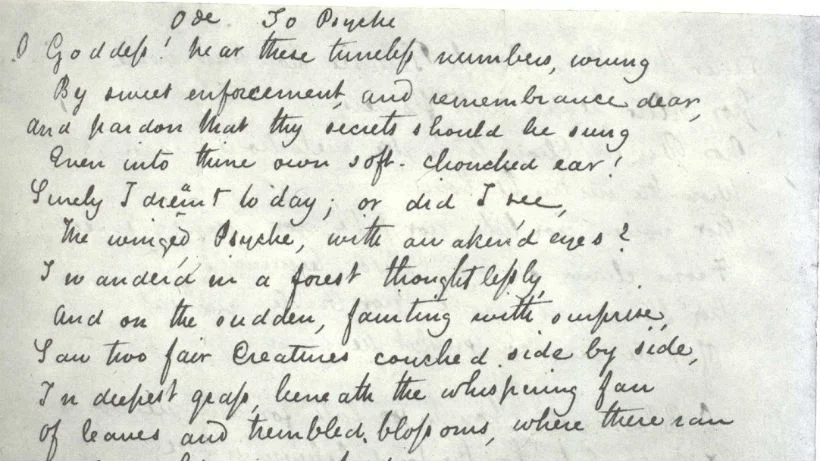 Ode. To Psyche
O Goddess! hear these tuneless numbers, wrung
By sweet enforcement, and remembrance dear,
And pardon that thy secrets should be sung
Even into thine own soft-chonched ear!
Surely I dreamt to day; or did I see,
The winged Psyche, with awaken'd eyes?
I wander'd in a forest thoughtlessly,
And on the sudden, fainting with surprise,
Saw two fair Creatures couched side by side,
In deepest grass, beneath the whispering fan
Of leaves and trembled blossoms, where there ran